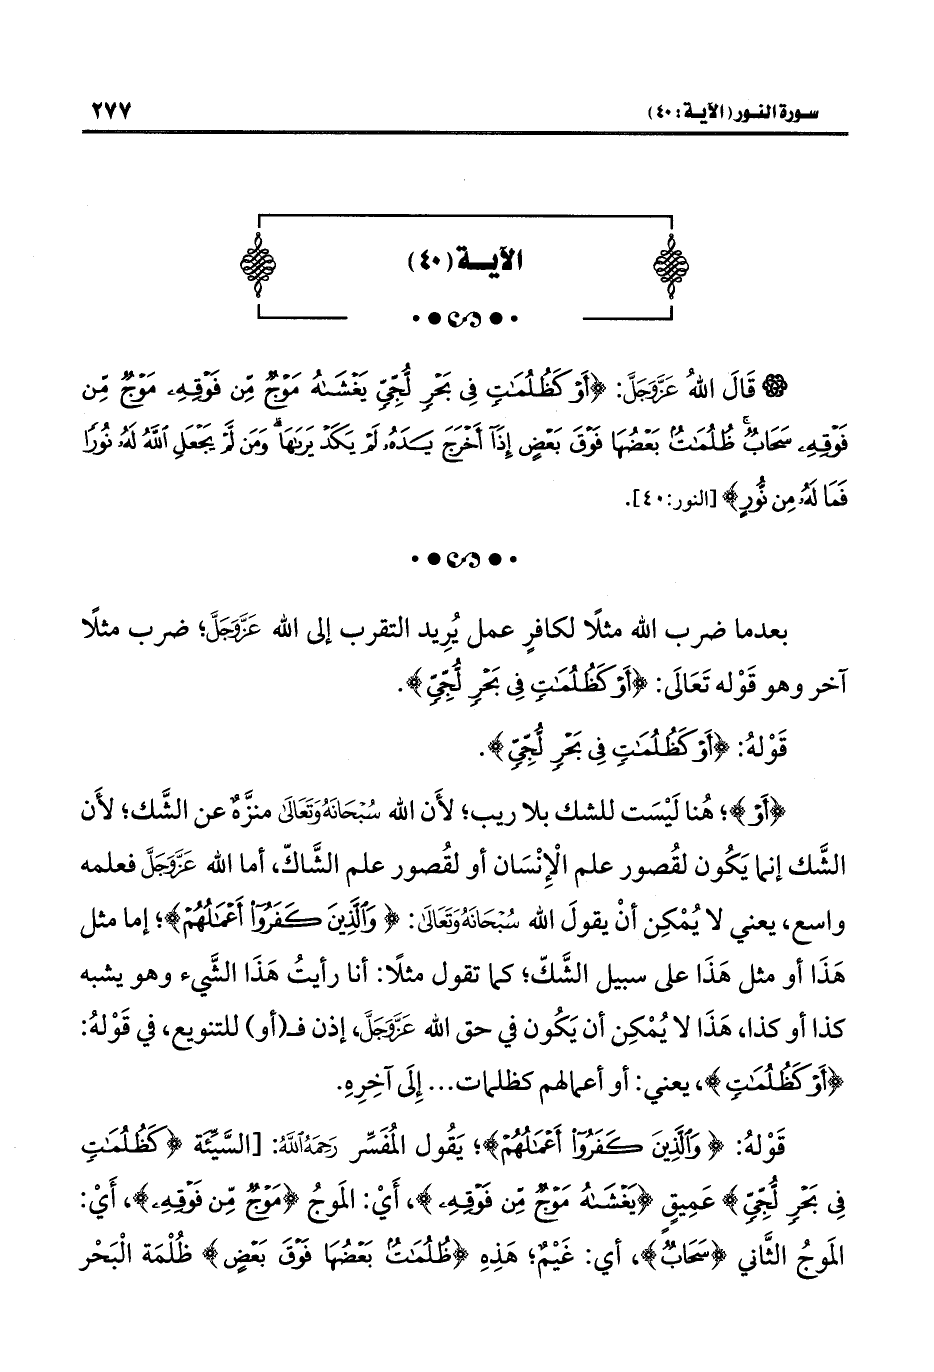 سورة النور (الآية: ٤٠)
٢٧٧
الآية (٤٠)
قَالَ اللهُ عَزَّوَجَلَّ: ﴿أَوْ كَظُلُمَٰتٍ فِي بَحْرٍ لُّجِّيٍّ يَغْشَىٰهُ مَوْجٌ مِّن فَوْقِهِۦ مَوْجٌ مِّن
فَوْقِهِۦ سَحَابٌ ۚ ظُلُمَٰتٌۢ بَعْضُهَا فَوْقَ بَعْضٍ إِذَآ أَخْرَجَ يَدَهُۥ لَمْ يَكَدْ يَرَىٰهَا ۗ وَمَن لَّمْ يَجْعَلِ ٱللَّهُ لَهُۥ نُورًا
فَمَا لَهُۥ مِن نُّورٍ﴾ [النور:٤٠].
بعدما ضرب الله مثلًا لكافرٍ عمل يُرِيد التقرب إلى الله عَزَّوَجَلَّ؛ ضرب مثلًا
آخر وهو قَوْله تَعَالَى: ﴿أَوْ كَظُلُمَٰتٍ فِي بَحْرٍ لُّجِّيٍّ﴾.
قَوْلهُ: ﴿أَوْ كَظُلُمَٰتٍ فِي بَحْرٍ لُّجِّيٍّ﴾.
﴿أَوْ﴾؛ هُنا لَيْسَت للشك بلا ريب؛ لأن الله سُبْحَانَهُ وَتَعَالَى منزَّهٌ عن الشَّك؛ لأن
الشَّك إنما يَكُون لقُصور علم الْإِنْسَان أو لقُصور علم الشَّاكّ، أما الله عَزَّوَجَلَّ فعلمه
واسع، يعني لا يُمْكِن أنْ يقولَ الله سُبْحَانَهُ وَتَعَالَى: ﴿وَٱلَّذِينَ كَفَرُوٓا۟ أَعْمَٰلُهُمْ﴾؛ إما مثل
هَذَا أو مثل هَذَا على سبيل الشَّكّ؛ كما تقول مثلًا: أنا رأيتُ هَذَا الشَّيء وهو يشبه
كذا أو كذا، هَذَا لا يُمْكِن أن يَكُون في حق الله عَزَّوَجَلَّ، إذن فـ(أو) للتنويع، في قَوْلهُ:
﴿أَوْ كَظُلُمَٰتٍ﴾، يعني: أو أعمالهم كظلمات... إِلَى آخِرِهِ.
قَوْلهُ: ﴿وَٱلَّذِينَ كَفَرُوٓا۟ أَعْمَٰلُهُمْ﴾؛ يَقُول المُفَسِّر رَحِمَهُ اللَّهُ: [السَّيِّئَة ﴿كَظُلُمَٰتٍ
فِي بَحْرٍ لُّجِّيٍّ﴾ عَمِيقٍ ﴿يَغْشَىٰهُ مَوْجٌ مِّن فَوْقِهِۦ﴾، أَيْ: المَوجُ ﴿مَوْجٌ مِّن فَوْقِهِۦ﴾، أَيْ:
المَوجُ الثَّاني ﴿سَحَابٌ﴾، أي: غَيْمٌ؛ هَذِهِ ﴿ظُلُمَٰتٌۢ بَعْضُهَا فَوْقَ بَعْضٍ﴾ ظُلْمَة الْبَحْر